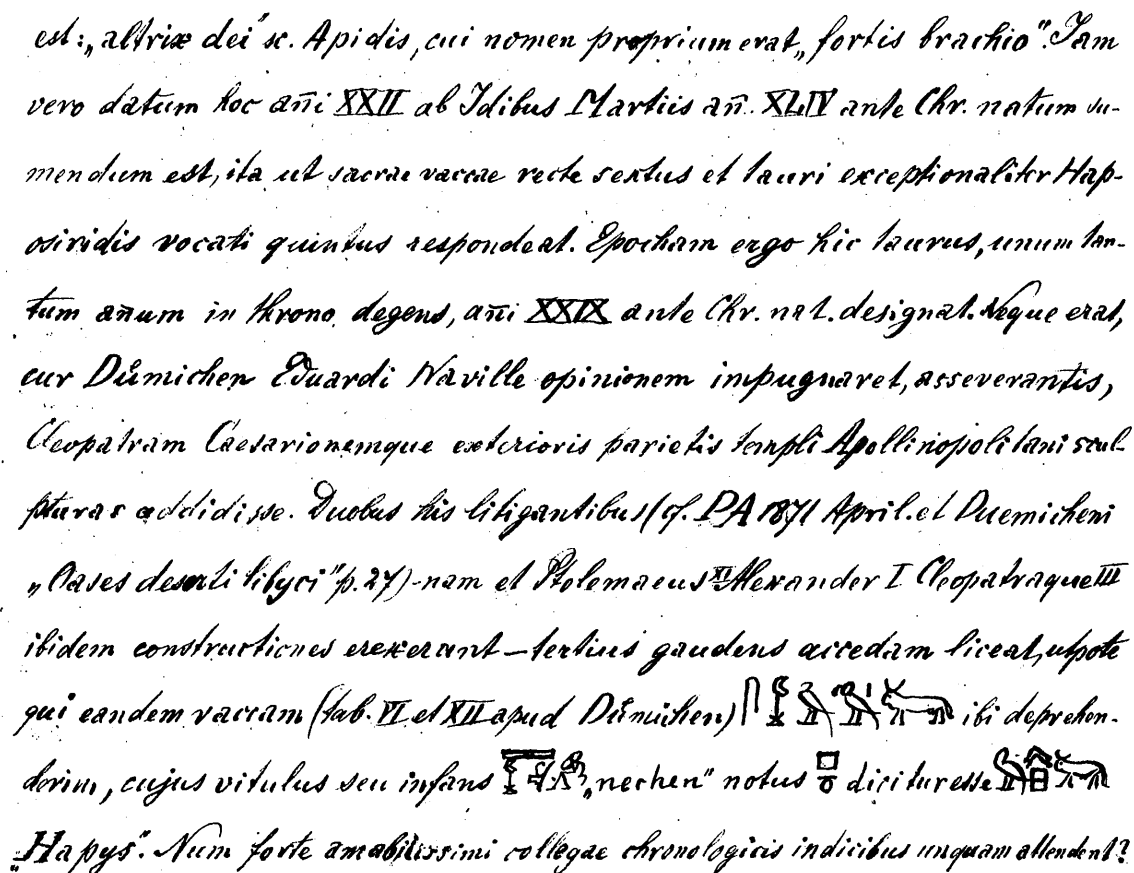 est: „altrix dei" sc. Apidis, cui nomen proprium erat „fortis brachio". Jam
vero datum hoc an̄i XXII ab Idibus Martiis an̄. XLIV ante Chr. natum su-
mendum est, ita ut sacrae vaccae recte sextus et tauri exceptionaliter Hap-
osiridis vocati quintus respondeat. Epocham ergo hic taurus, unum tan-
tum an̄um in throno degens, an̄i XXIX ante Chr. nat. designat. Neque erat,
cur Dümichen Eduardi Naville opinionem impugnaret, asseverantis,
Cleopatram Caesarionemque exterioris parietis templi Apollinopolitani scul-
pturas addidisse. Duobus his litigantibus (cf. PA 1871 April. et Duemicheni
„Oases deserti libyci" p. 27) - nam et Ptolemaeus XI Alexander I Cleopatraque III
ibidem constructiones erexerant — tertius gaudens accedam liceat, utpote
qui eandem vaccam (tab. VI et XII apud Dümichen) ibi deprehen-
derim, cujus vitulus seu infans „nechen" notus dicitur esse
„Hapys". Num forte amabilissimi collegae chronologicis indicibus unquam attendent?